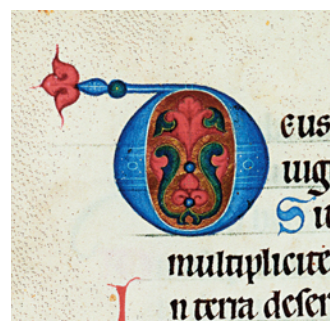 Deus
uig
Si
multiplicite
In terra deser